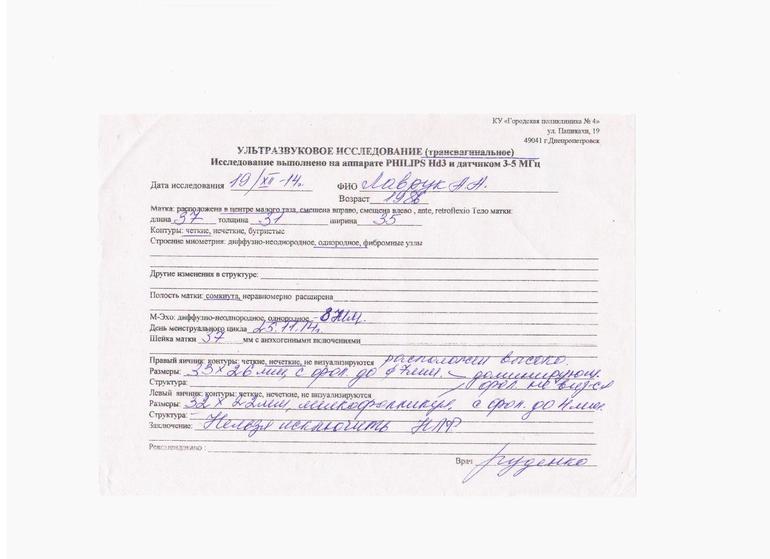 КУ «Городская поликлиника № 4»
ул. Папикахи, 19
49041 г.Днепропетровск
УЛЬТРАЗВУКОВОЕ ИССЛЕДОВАНИЕ (трансвагинальное)
Исследование выполнено на аппарате PHILIPS Hd3 и датчиком 3-5 МГц
Дата исследования 19/XII-14г. ФИО Лаврук А.А.
Возраст 1986
Матка: расположена в центре малого таза, смещена вправо, смещена влево , ante, retroflexio Тело матки:
длина 57 толщина 31 ширина 35
Контуры: четкие, нечеткие, бугристые
Строение миометрия: диффузно-неоднородное, однородное, фибромные узлы
Другие изменения в структуре:
Полость матки: сомкнута, неравномерно расширена
М-Эхо: диффузно-неоднородное, однородное - 8 мм.
День менструального цикла 25.11.14г.
Шейка матки 37 мм с анэхогенными включениями
Правый яичник: контуры: четкие, нечеткие, не визуализируются расположен высоко.
Размеры: 35 х 26 мм, с фол. до 7 мм. – доминирующ.
Структура: фол. не видся
Левый яичник: контуры: четкие, нечеткие, не визуализируются
Размеры: 32 х 22 мм, с фол. до 4 мм.
Структура: –
Заключение: Нельзя исключить НЛФ.
Рекомендовано :
Врач Руденко